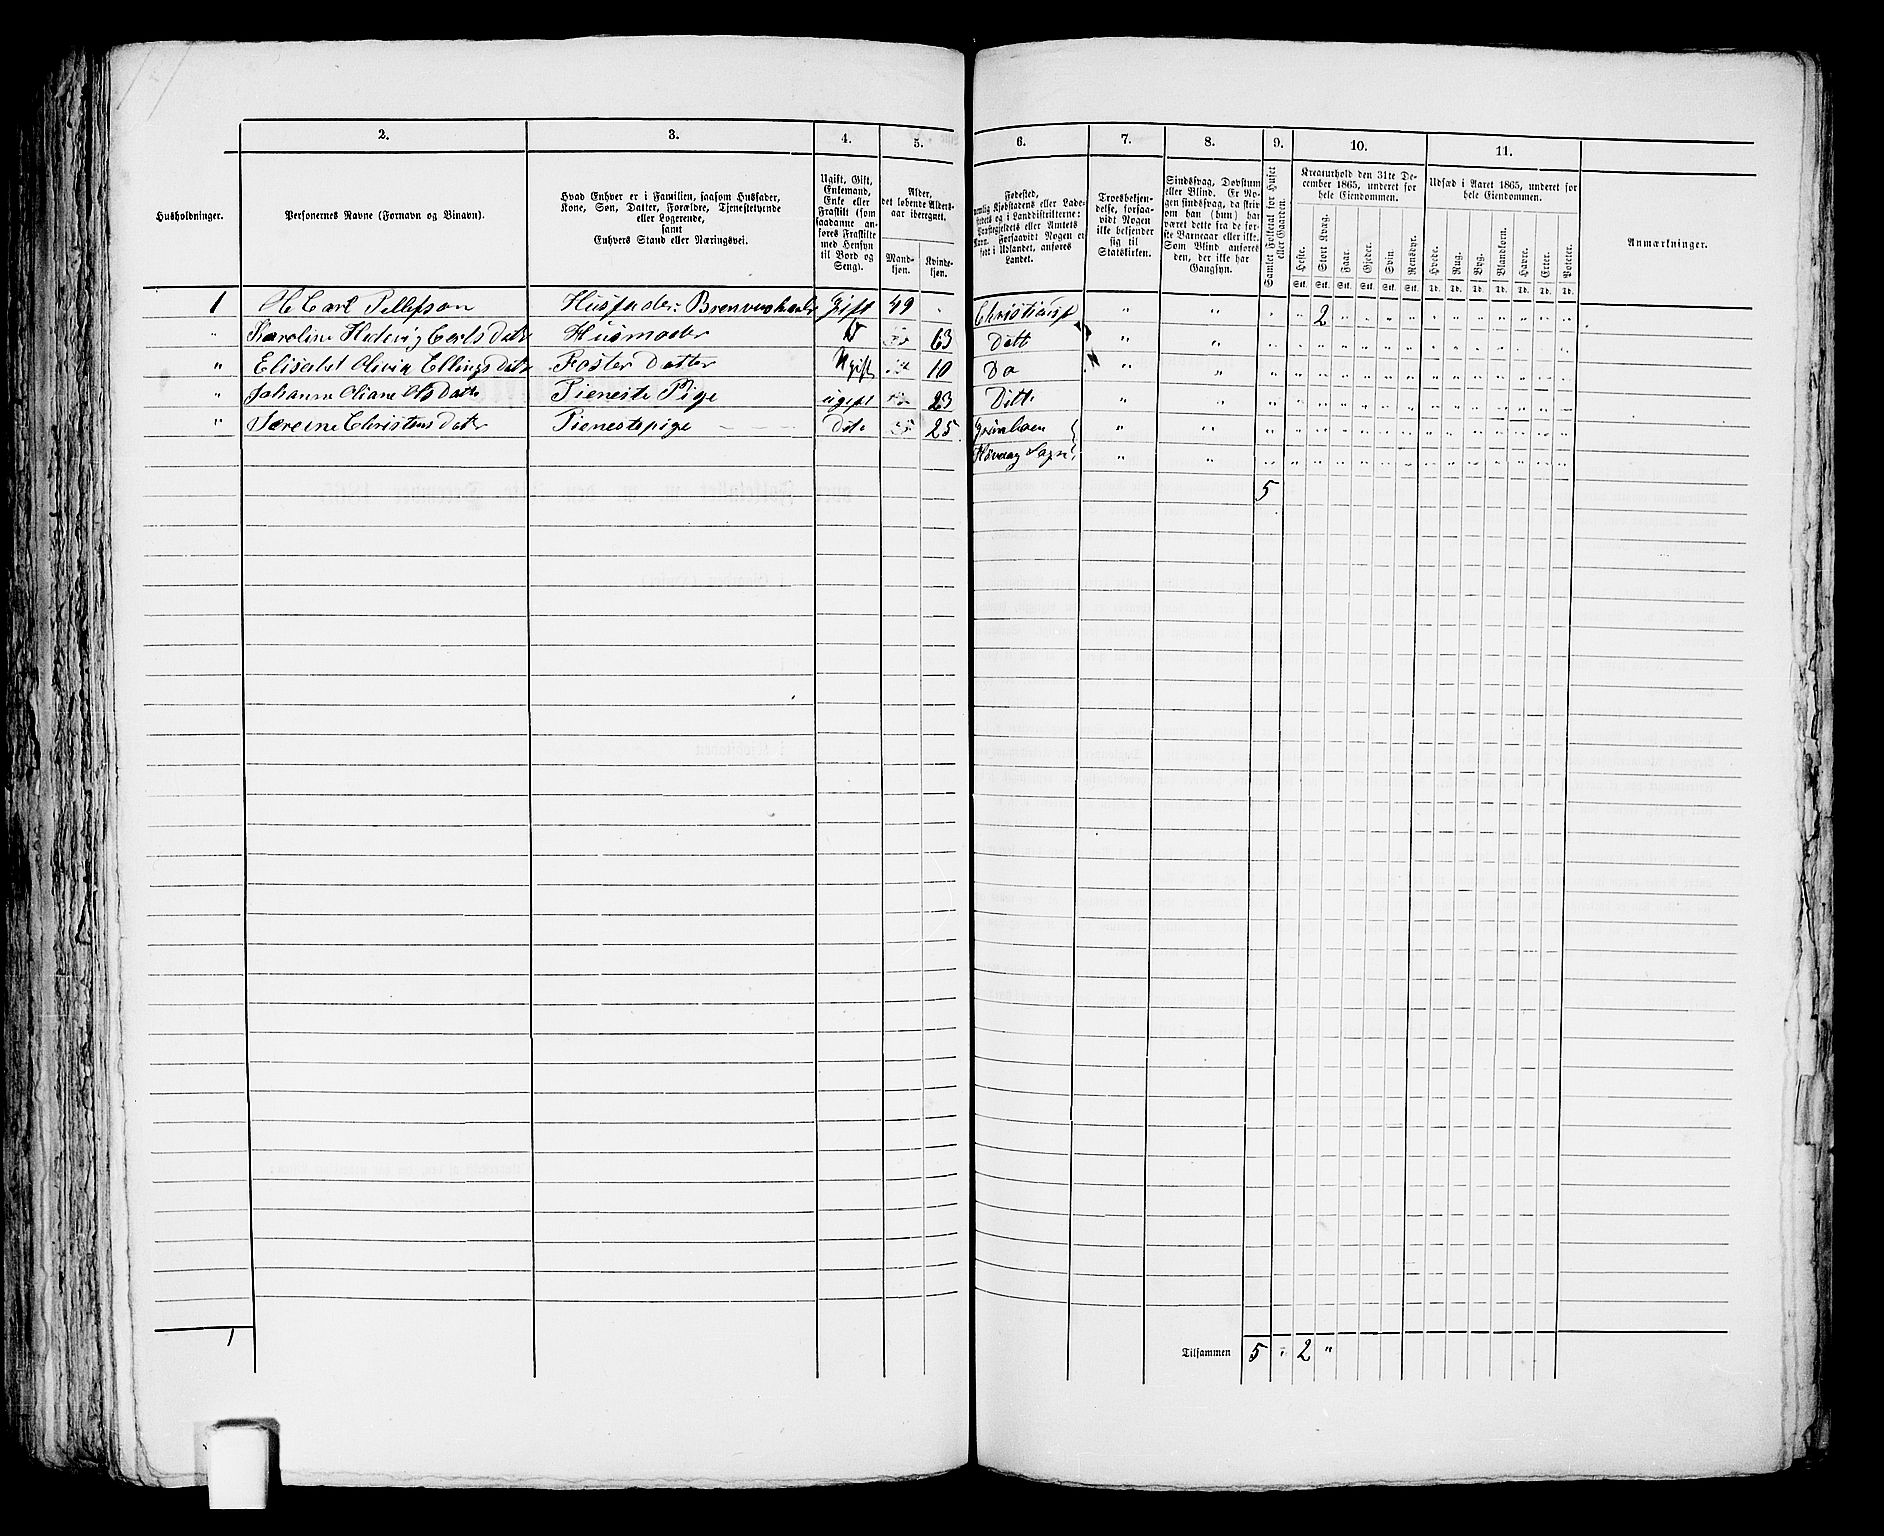 2. 3. 4. 5. 6. 7. 8. 9. 10. 11.
Husholdninger.
Personernes Navne (Fornavn og Binavn).
Hvad Enhver er i Familien, saasom Husfader,
Kone, Søn, Datter, Forældre, Tjenestetyende
eller Logerende,
samt
Enhvers Stand eller Næringsvei.
Ugift, Gift,
Enkemand,
Enke eller
Fraskilt (som
saadanne an-
føres Fraskilte
med Hensyn
til Bord og
Seng).
Alder,
det løbende Alders-
aar iberegnet.
Mand-
kjøn.
Kvinde-
kjøn.
Fødested,
nemlig Kjøbstadens eller Lade-
stedets og i Landdistrikterne:
Præstegjeldets eller Amtets
Navn. Forsaavidt Nogen er
født i Udlandet, anføres
Landet.
Troesbekjen-
delse, forsaa-
vidt Nogen
ikke bekjender
sig til
Statskirken.
Sindssvag, Døvstum
eller Blind. Er No-
gen sindssvag, da skriv
om han (hun) har
været dette fra de før-
ste Barneaar eller ikke.
Som Blind anføres
den, der ikke har
Gangsyn.
Samlet Folketal for Huset
eller Gaarden.
Kreaturhold den 31te De-
cember 1865, underet for
hele Eiendommen.
Heste. Stort Kvæg. Faar. Gjeder. Svin. Rensdyr.
Stk. Stk. Stk. Stk. Stk. Stk.
Udsæd i Aaret 1865, underet for
hele Eiendommen.
Hvede. Rug. Byg. Blandkorn. Havre. Erter. Poteter.
Td. Td. Td. Td. Td. Td. Td.
Anmærkninger.
1 H Carl Tellefson Husfader: Gift 49 " " " 2 " " " " " " " " " " "
" Karoline Hedevig Carls Datr Husmoder 63 Ditt " " " " " " " " " " " " " " "
" Elisabet Olivia Ellings Datr Foster Datter Ugift 10 Do " " " " " " " " " " " " " " "
" Johanne Oliane Ols Datr Tieneste Pige ugift 23 Ditto " " " " " " " " " " " " " " "
" Christens Datr Tienestepige Dito 25 " " " " " " " " " " " " " " "
Høvaag Sogn " " " " " " " " " " " " " " "
5
1
Tilsammen 5 " 2 "